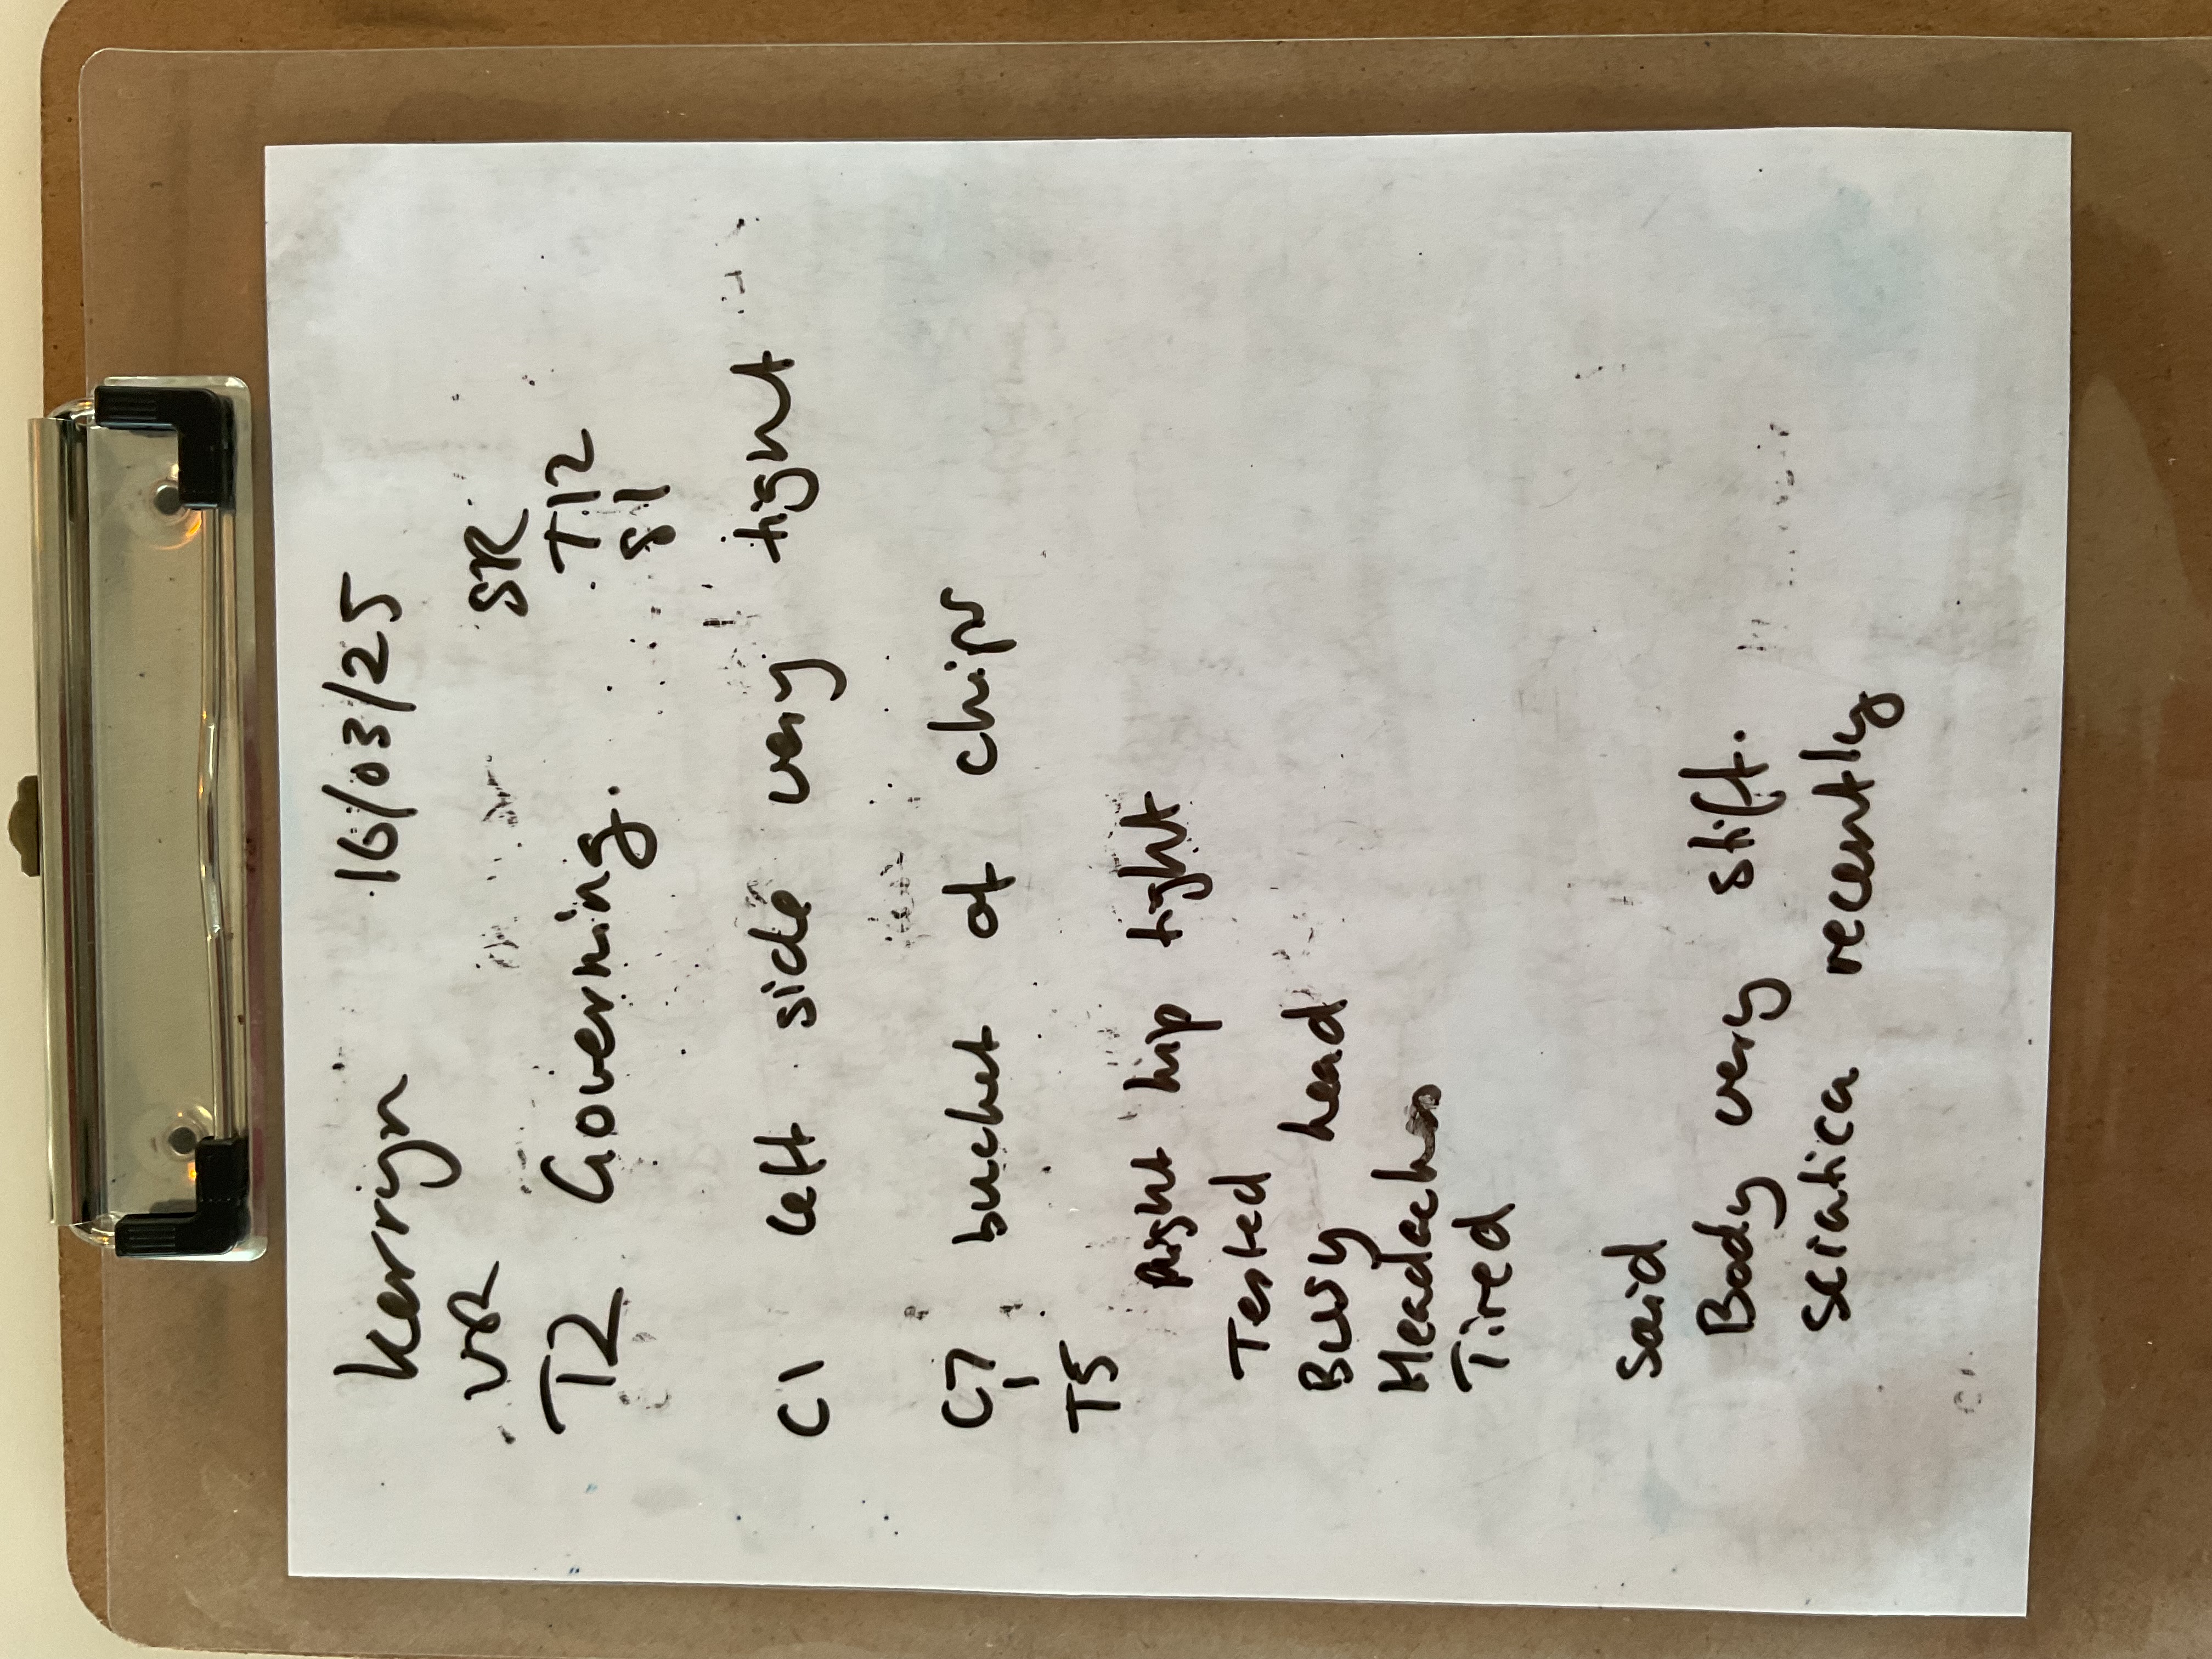 Kerryn 16/03/25
VR SR
T2 Governing. T12
S1
C1 left side very tight
C7 bucket of chips
T5
Right hip tight
Tested
Busy head
Headache
Tired
Said
Body very stift.
Sciatica recently